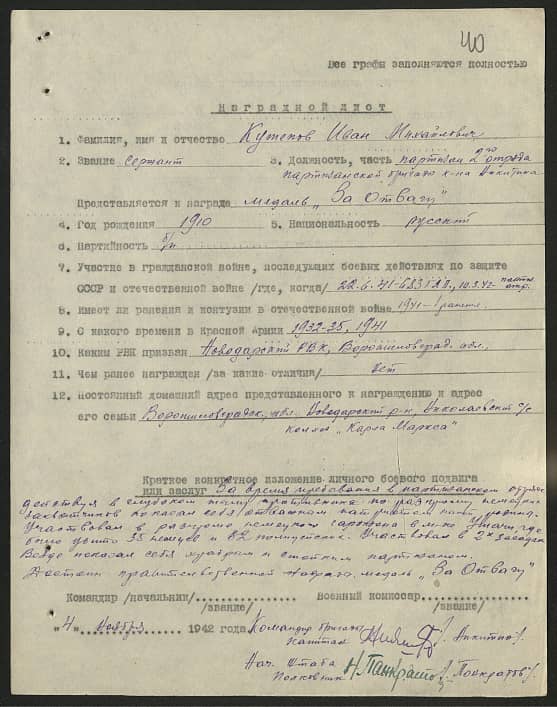 40
Все графы заполняются полностью
Наградной лист
1. Фамилия, имя и отчество Кутепов Иван Михайлович
2. Звание сержант 3. Должность, часть партизан 2го отряда
партизанской бригады к-на Никитина
Представляется к награде медаль "За Отвагу"
4. Год рождения 1910 5. Национальность русский
6. Партийность б/п
7. Участие в гражданской войне, последующих боевых действиях по защите
СССР и отечественной войне /где, когда/ 22.6.41-683 10.3.42- парт. отр.
8. Имеет ли ранения и контузии в отечественной войне 1941-1 ранен.
9. С какого времени в Красной Армии 1932-35, 1941
10. Каким РВК призван Новодарский РВК, Ворошиловград. обл.
11. Чем ранее награжден /за какие отличия/ нет
12. Постоянный домашний адрес представленного к награждению и адрес
его семьи Ворошиловградск. обл. Новодарский р-н, Николаевский с/с
колхоз "Карла Маркса"
Краткое конкретное изложение личного боевого подвига
или заслуг За время пребывания в партизанском отряде
действуя в глубоком тылу противника по разгрому немецких
захватчиков показал себя отважным патриотом нашей родины.
Участвовал в разгроме немецкого гарнизона в м-ко Ушачи, где
было убито 35 немцев и 82 полицейских. Участвовал в 2х засадах
Везде показал себя храбрым и стойким партизаном.
Достоин правительственной награды медаль "За Отвагу"
Командир /начальник/.............. Военный комиссар..............
/звание/ /звание/
"4" Ноября 1942 года Командир бригады
капитан /Никитин/.
Нач. Штаба
Полковник Н. Панкратов /Панкратов/.